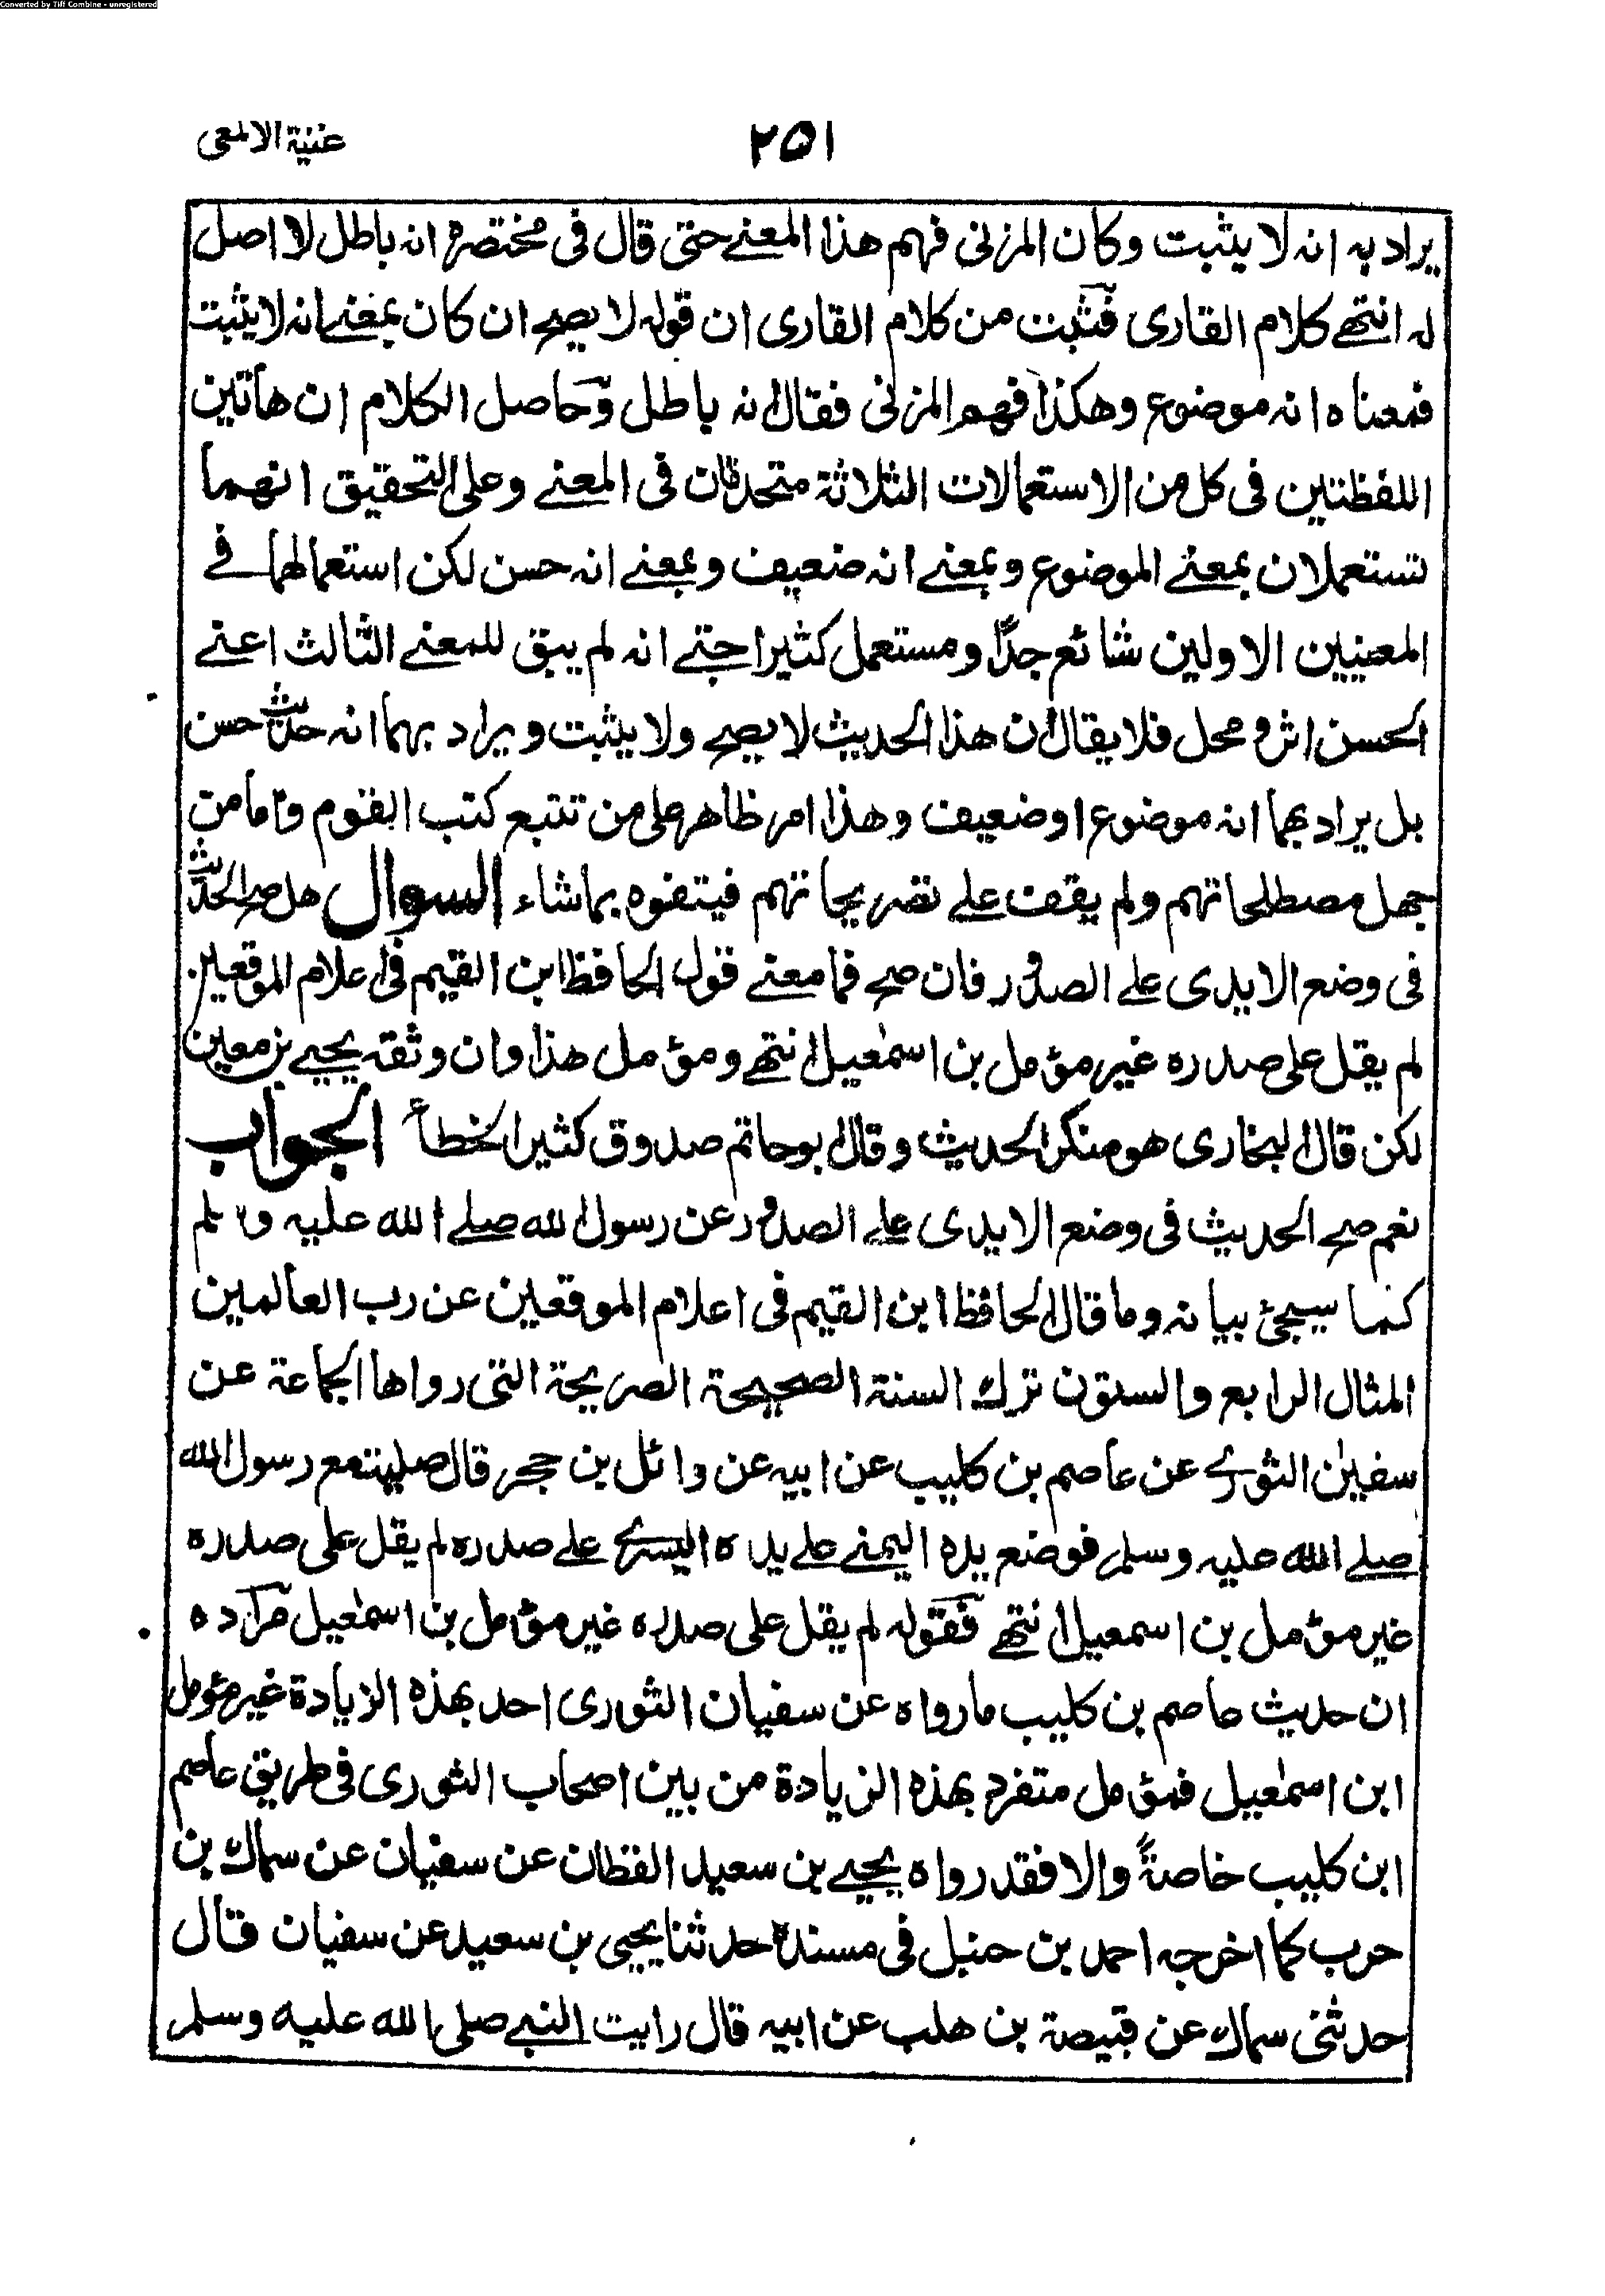 Converted by Tiff Combine - unregistered
غنية الالمعى
٢٥١
يراد به انه لا يثبت وكان المزنى فهم هذا المعنے حتى قال فى مختصره انه باطل لا اصل
له انتهے كلام القارى فثبت من كلام القارى ان قوله لا يصح ان كان بمعنے انه لا يثبت
فمعناه انه موضوع وهكذا فهم المزنى فقال انه باطل وحاصل الكلام ان هاتين
اللفظتين فى كل من الاستعمالات الثلاثة متحدتان فى المعنے وعلى التحقيق انهما
تستعملان بمعنے الموضوع وبمعنے انه ضعيف وبمعنے انه حسن لكن استعمالهما فے
المعنيين الاولين شائع جدًا ومستعمل كثيرا حتے انه لم يبق للمعنے الثالث اعنے
الحسن اثر و محل فلا يقال ان هذا الحديث لا يصح ولا يثبت ويراد بهما انه حديث حسن
بل يراد بهما انه موضوع او ضعيف وهذا امر ظاهر على من تتبع كتب القوم واما من
جهل مصطلحاتهم ولم يقف علے تصريحاتهم فيتفوه بماشاء السوال هل صح الحديث
فى وضع الايدى علے الصدور فان صح فما معنے قول الحافظ ابن القيم فى اعلام الموقعين
لم يقل على صدره غير مؤمل بن اسمٰعيل انتهے ومؤمل هذا وان وثقه يحيے بن معين
لكن قال البخارى هو منكر الحديث وقال ابو حاتم صدوق كثير الخطأ الجواب
نعم صح الحديث فى وضع الايدى علے الصدور عن رسول الله صلے الله عليه وسلم
كما سيجئ بيانه وما قال الحافظ ابن القيم فى اعلام الموقعين عن رب العالمين
المثال الرابع والستون ترك السنة الصحيحة الصريحة التى رواها الجماعة عن
سفيٰن الثورے عن عاصم بن كليب عن ابيه عن وائل بن حجر قال صليت مع رسول الله
صلے الله عليه وسلم فوضع يده اليمنے علے يده اليسرے علے صدره لم يقل على صدره
غير مؤمل بن اسمعيل انتهے فقوله لم يقل على صدره غير مؤمل بن اسمٰعيل مراده
ان حديث عاصم بن كليب ما رواه عن سفيان الثورى احد بهذه الزيادة غير مؤمل
ابن اسمٰعيل فمؤمل متفرد بهذه الزيادة من بين اصحاب الثورى فى طريق عاصم
ابن كليب خاصةً والا فقد رواه يحيے بن سعيد القطان عن سفيان عن سماك بن
حرب كما اخرجه احمد بن حنبل فى مسنده حدثنا يحيى بن سعيد عن سفيان قال
حدثنى سماك عن قبيصة بن هلب عن ابيه قال رايت النبے صلى الله عليه وسلم